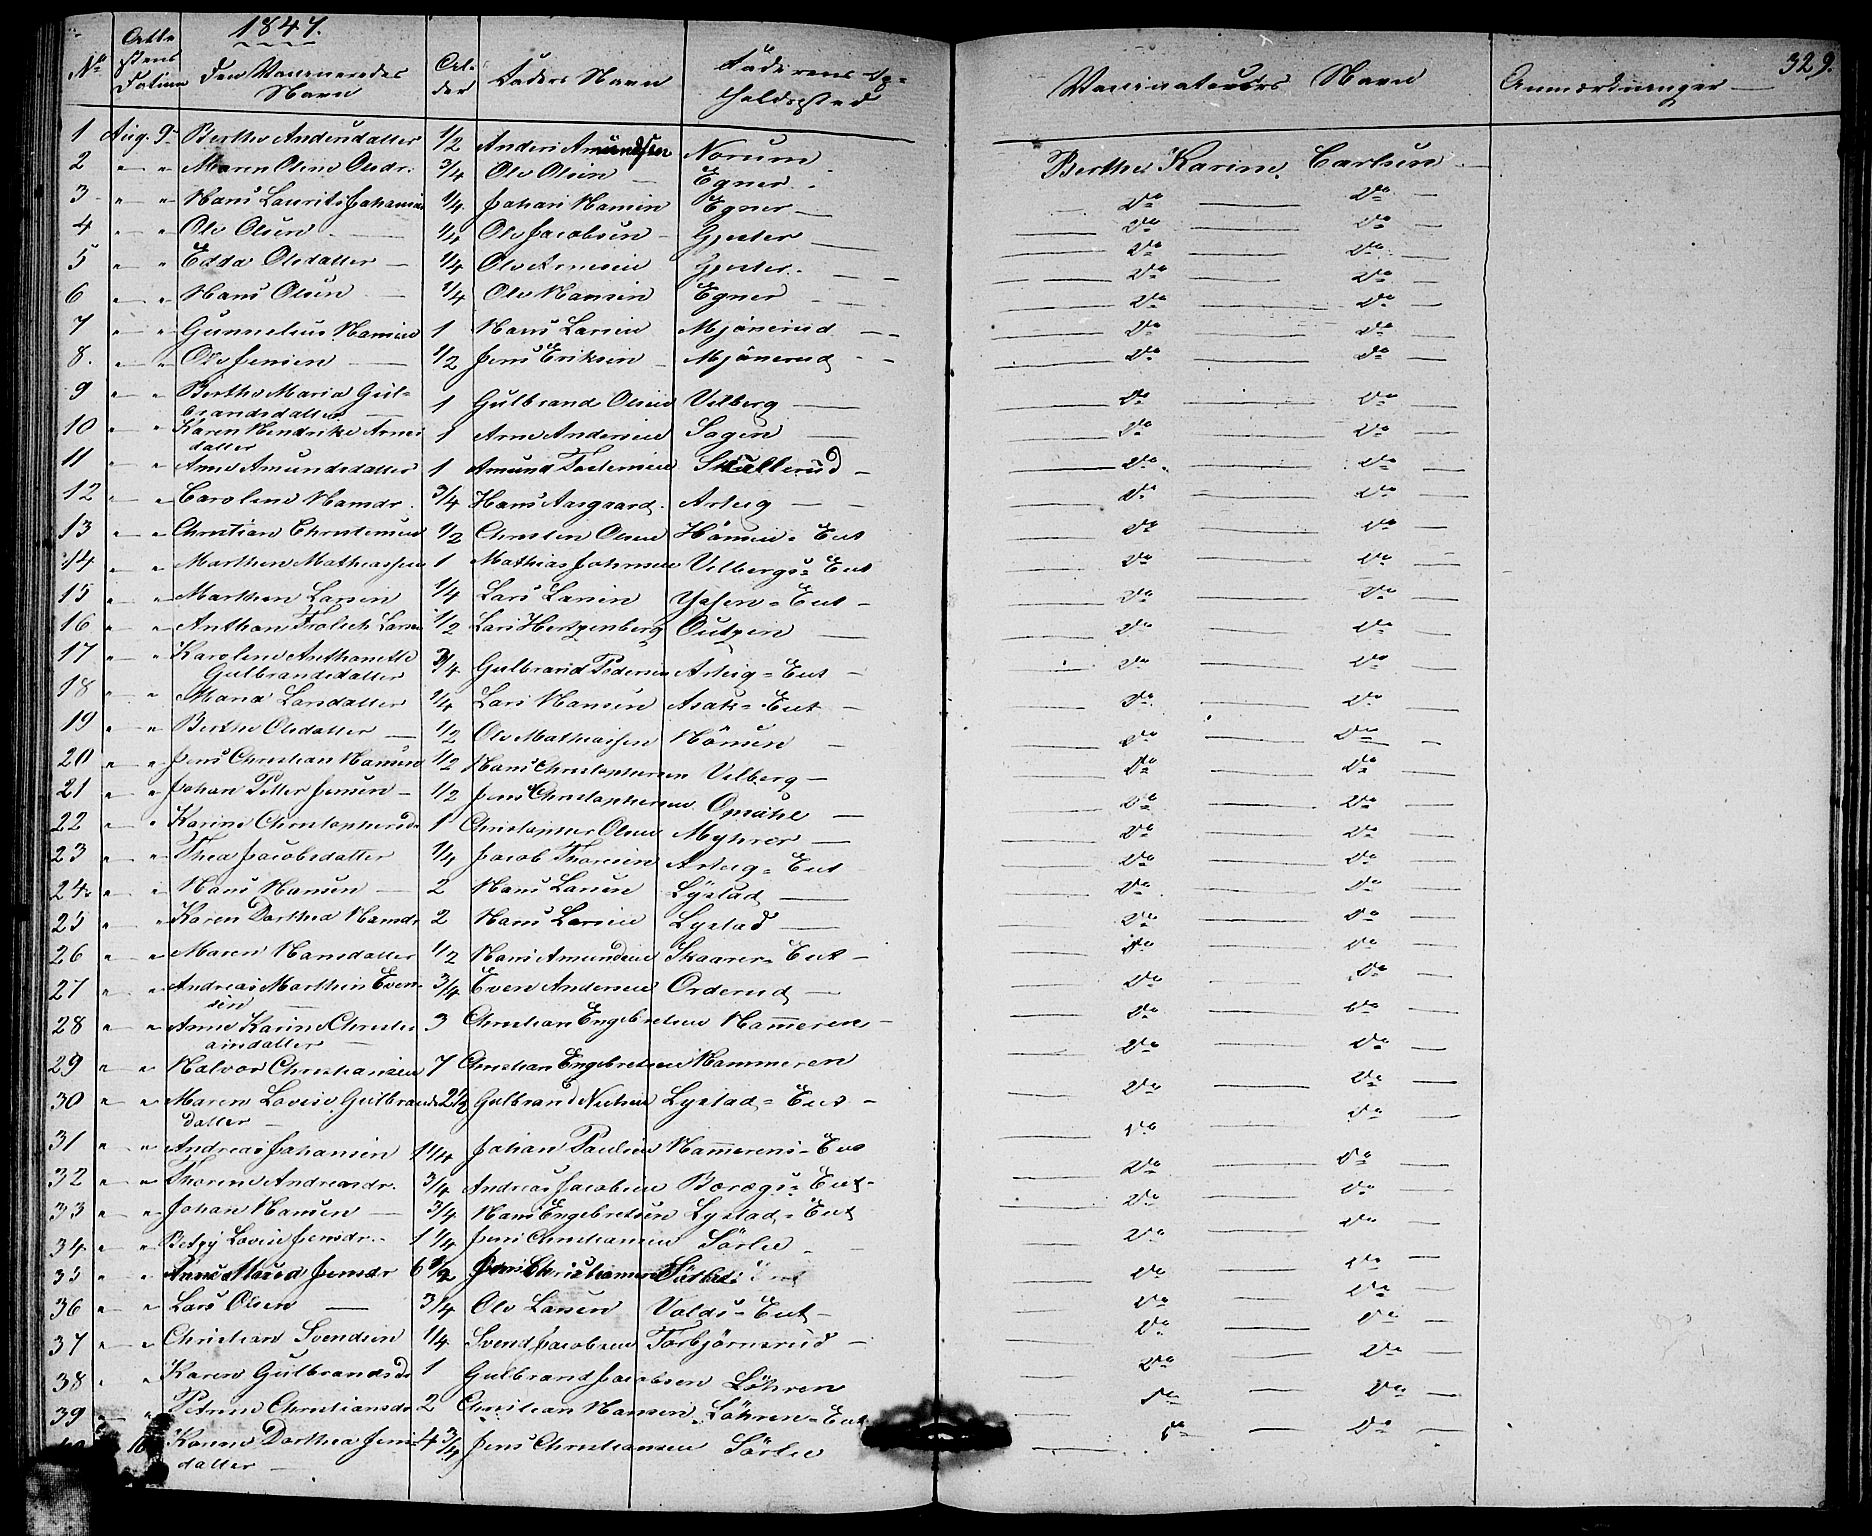 1847.
329.
No Atte stens Datum Den Vaccineredes Navn Al- der Faders Navn Fäderens Op- holdssted Vaccinateurs Navn Anmærkninger
1 Aug. 9 Berthe Andersdatter 1/2 Anders Amundsen Norum Berthe Karine Carlsen
2 " " Maren Oline Olsdr. 3/4 Ole Olsen Egner Do Do
3 " " Hans Laurits Johansen 1/4 Johan Hansen Egner Do Do
4 " " Ole Olsen 1/4 Ole Jacobsen Gjester Do Do
5 " " Edda Olsdatter 1/4 Ole Arnesen Gjester Do Do
6 " " Hans Olsen 1/4 Ole Hansen Egner Do Do
7 " " Gunnelius Hansen 1 Hans Larsen Mjönerud Do Do
8. " " Ole Jensen 1/2 Jens Eriksen Mjönerud Do Do
9 " " Berthe Maria Gul- brandsdatter 1 Gulbrand Olsen Velberg Do Do
10 " " Karen Hendrike Arnes datter 1 Arne Andersen Sagen Do Do
11 " " Anne Amundsdatter 1 Amund Torstensen Skullerud Do Do
12 " " Caroline Hansdr. 3/4 Hans Aasgaard Arteig Do Do
13 " " Christian Christensen 1/2 Christen Olsen Hönsen-Eie Do Do
14 " " Marthin Mathiassen 1 Mathias Johnsen Velbergs-Eie Do Do
15 " " Marthin Larsen 1/4 Lars Larsen -Eie Do Do
16 " " Anthon Frolich Larsen 1/2 Lars Hertzenberg Do Do
17 " " Karoline Anthonette Gulbrandsdatter 3/4 Gulbrand Pedersen Arteig-Eie Do Do
18 " " Maria Larsdatter 1/4 Lars Hansen Asak-Eie Do Do
19 " " Berthe Olsdatter 1/2 Ole Mathiassen Hönsen Do Do
20 " " Jens Christian Hansen 1/2 Hans Christophersen Velberg Do Do
21 " " Johan Petter Jensen 1/2 Jens Christophersen Do Do
22 " " Karine Christophersdr 1 Christopher Olsen Myhrer Do Do
23 " " Thea Jacobsdatter 1/4 Jacob Thoresen Arteig-Eie Do Do
24. " " Hans Hansen 2 Hans Larsen Lystad Do Do
25 " " Karen Dorthea Hansdr 2 Hans Larsen Lystad Do Do
26 " " Maren Hansdatter 1/2 Hans Amundsen Skaarer-Eie Do Do
27 " " Andreas Marthin Even- sen 3/4 Even Andersen Orderud Do Do
28 " " Anne Karine Christi ansdatter 3 Christian Engebretsen Hammeren Do Do
29 " " Halvor Christiansen 7 Christian Engebretsen Hammeren Do Do
30 " " Maren Lovise Gulbrands datter 2 1/2 Gulbrand Nielsen Lystad-Eie Do Do
31 " " Andreas Johansen 1 1/4 Johan Paulsen Hammerens-Eie Do Do
32 " " Thorine Andreasdr. 3/4 Andreas Jacobsen -Eie Do Do
33 " " Johan Hansen 3/4 Hans Engebretsen Lystad-Eie Do Do
34 " " Betzy Lovise Jensdr. 1 1/4 Jens Christiansen Sörlie Do Do
35 " " Anne Maria Jensdr 6 1/2 Jens Christiansen Do Do
36 " " Lars Olsen 3/4 Ole Larsen Valds-Eie Do Do
37 " " Christian Svendsen 1/4 Svend Jacobsen Torbjörnsrud Do Do
38 " " Karen Gulbrandsdr 1 Gulbrand Jacobsen Löhren Do Do
39 " " Petrine Christiansdr 2 Christian Hansen Löhren-Eie Do Do
Karine Dorthea Jens datter 4 3/4 Jens Christiansen Sörlie